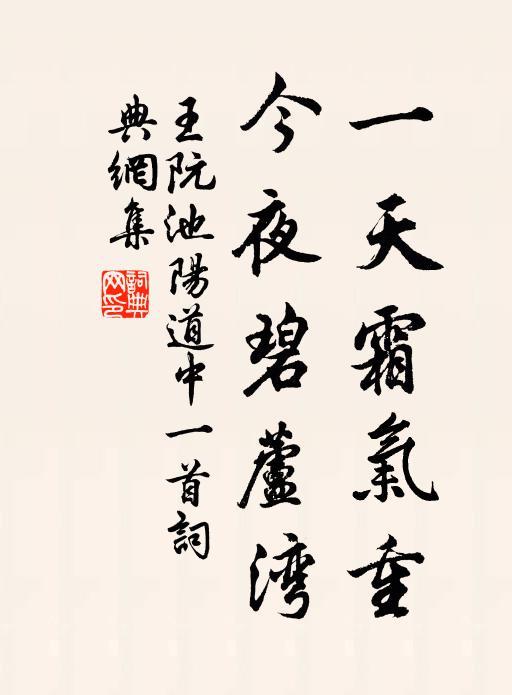 一天霜氣重
今夜碧蘆灣
王阮池陽道中一首詞
典網集
詞典
网印